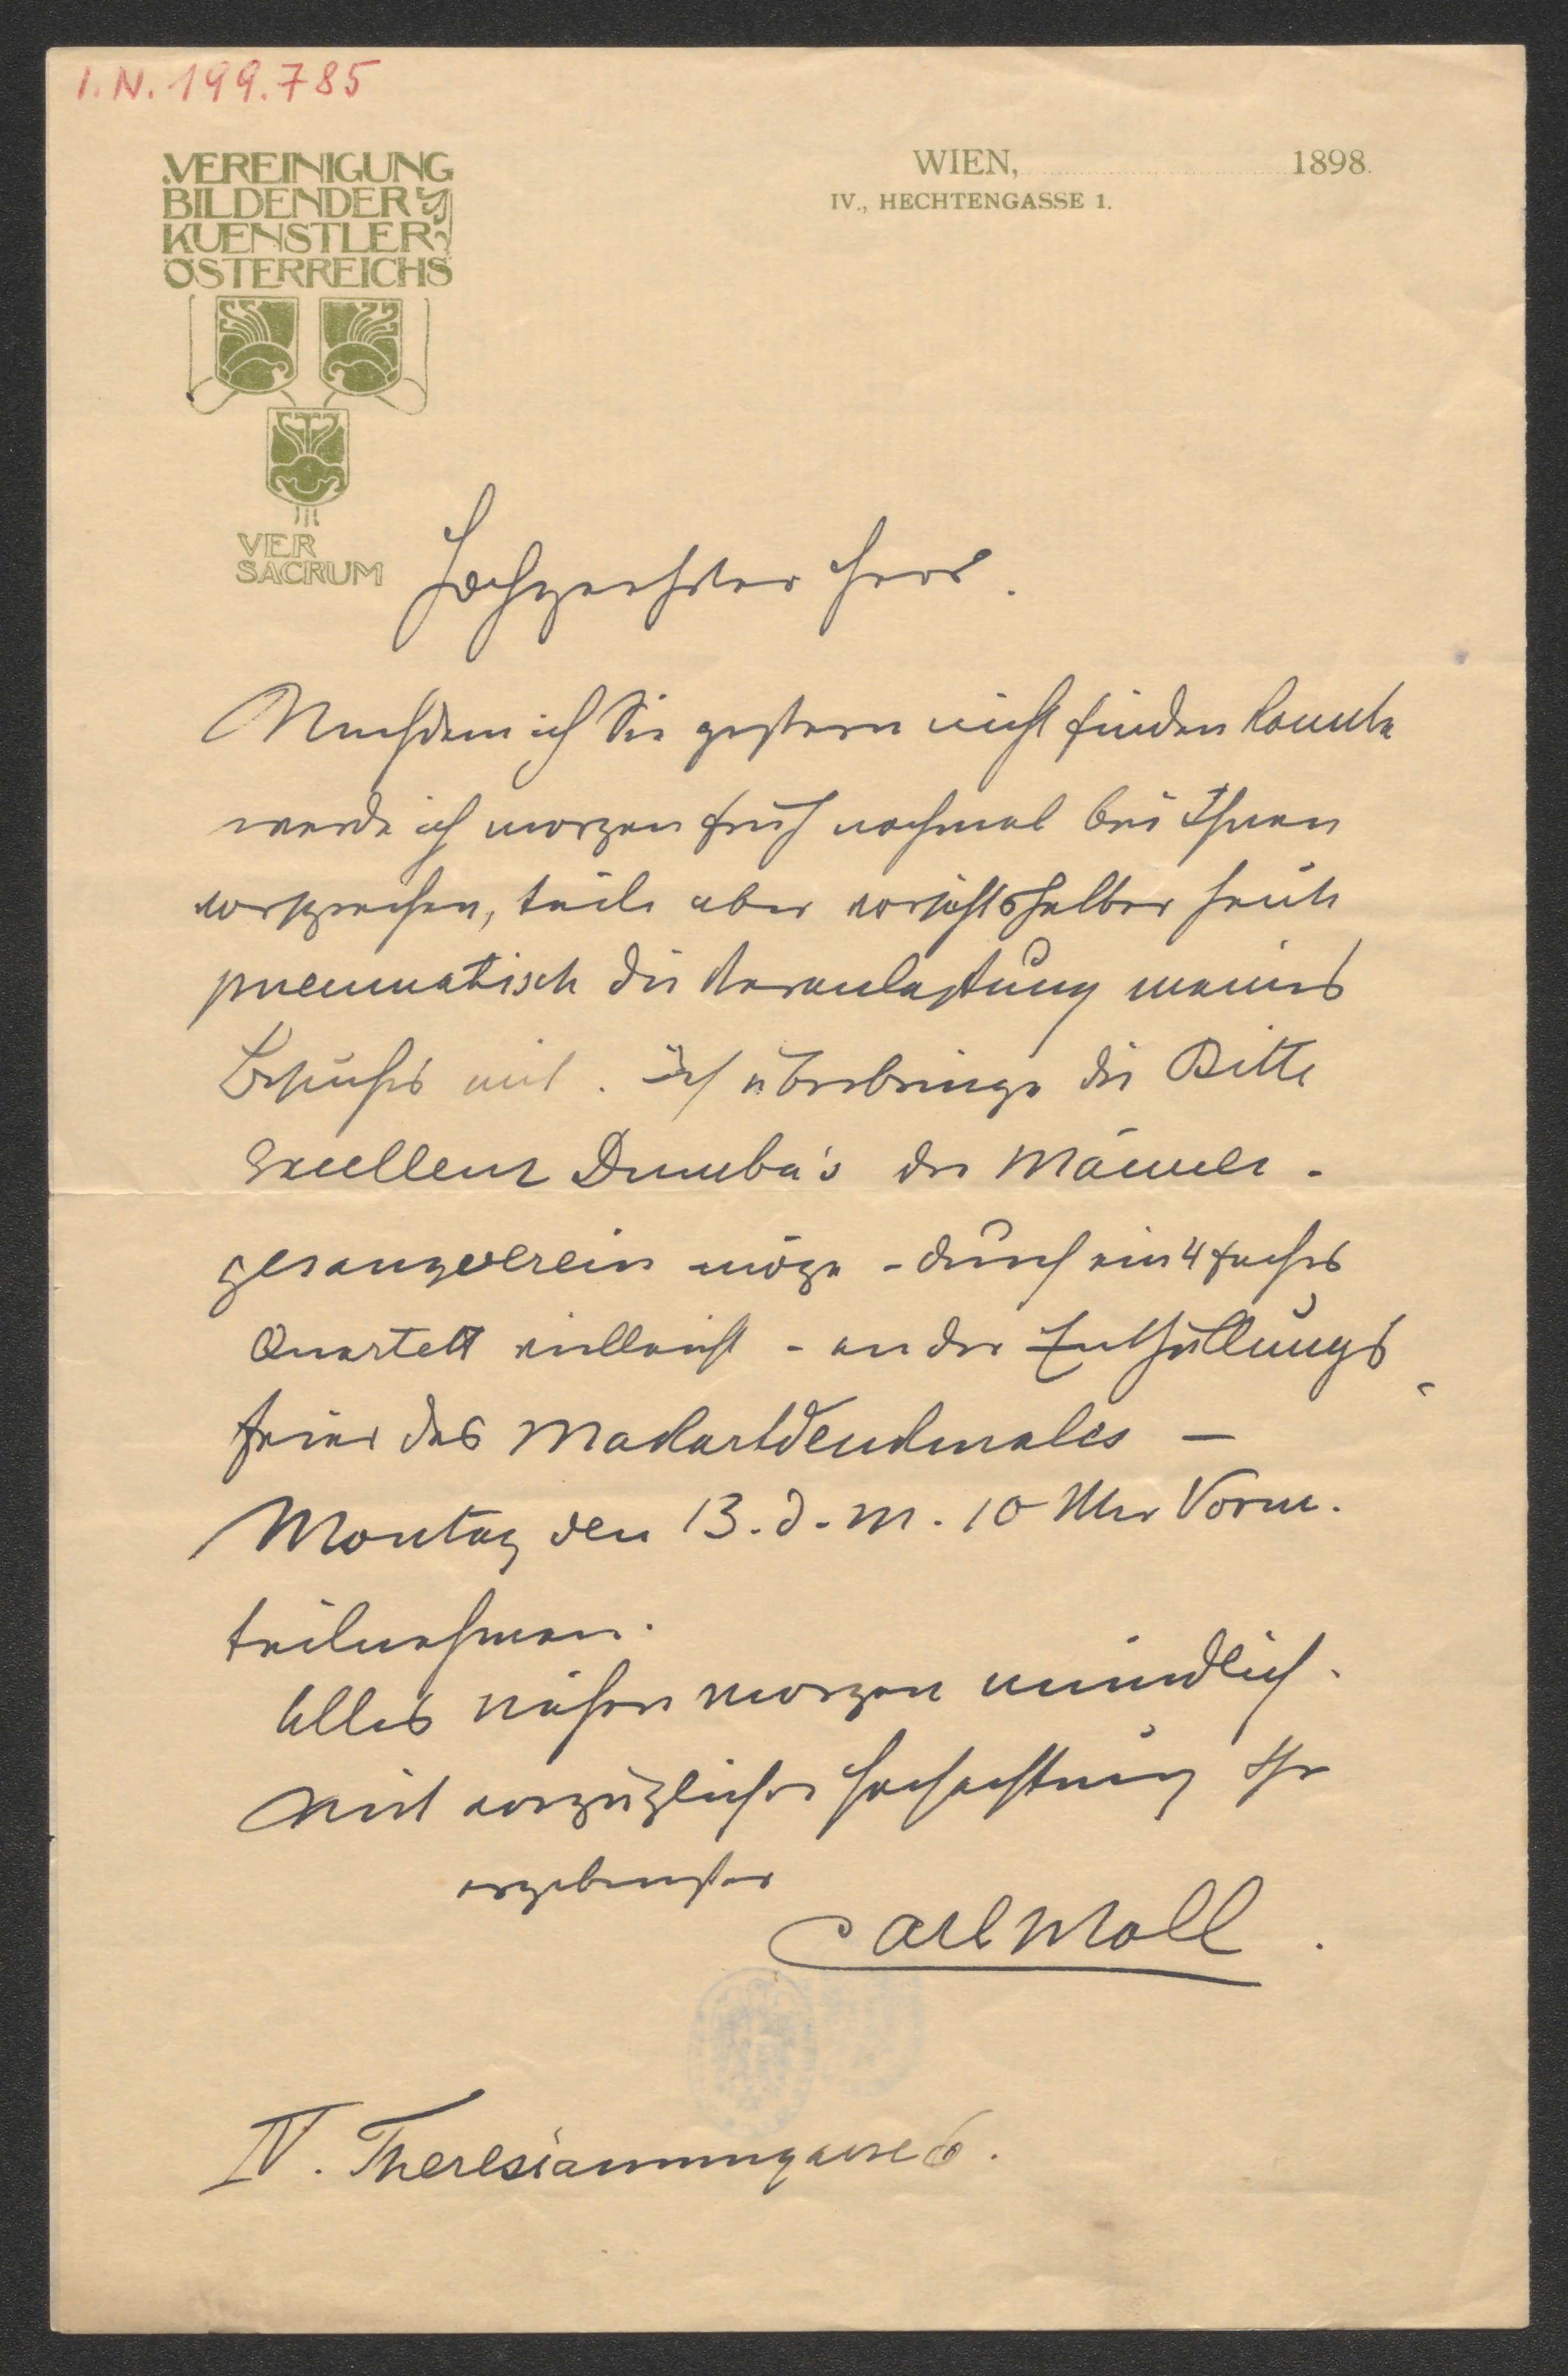 I. N. 199.785
VEREINIGUNG
BILDENDER
KUENSTLER
ÖSTERREICHS
WIEN, 1898.
IV., HECHTENGASSE 1.
VER
SACRUM
Hochgeehrter Herr.
Nachdem ich Sie gestern nicht finden konnte
werde ich morgen früh nochmal bei Ihnen
vorsprechen, teile aber vorsichtshalber heute
pneumatisch die Veranlassung meines
Besuches mit. Ich überbringe die Bitte
Excellenz Dumba's der Männer-
gesangverein möge - durch ein 4faches
Quartett vielleicht - an der Enthüllungs-
feier des Makartdenkmales —
Montag den 13. d. M. 10 Uhr Vorm.
teilnehmen.
Alles nähere morgen mündlich.
Mit vorzüglicher Hochachtung Ihr
ergebenster
Carl Moll.
IV. Theresianumgasse 6.